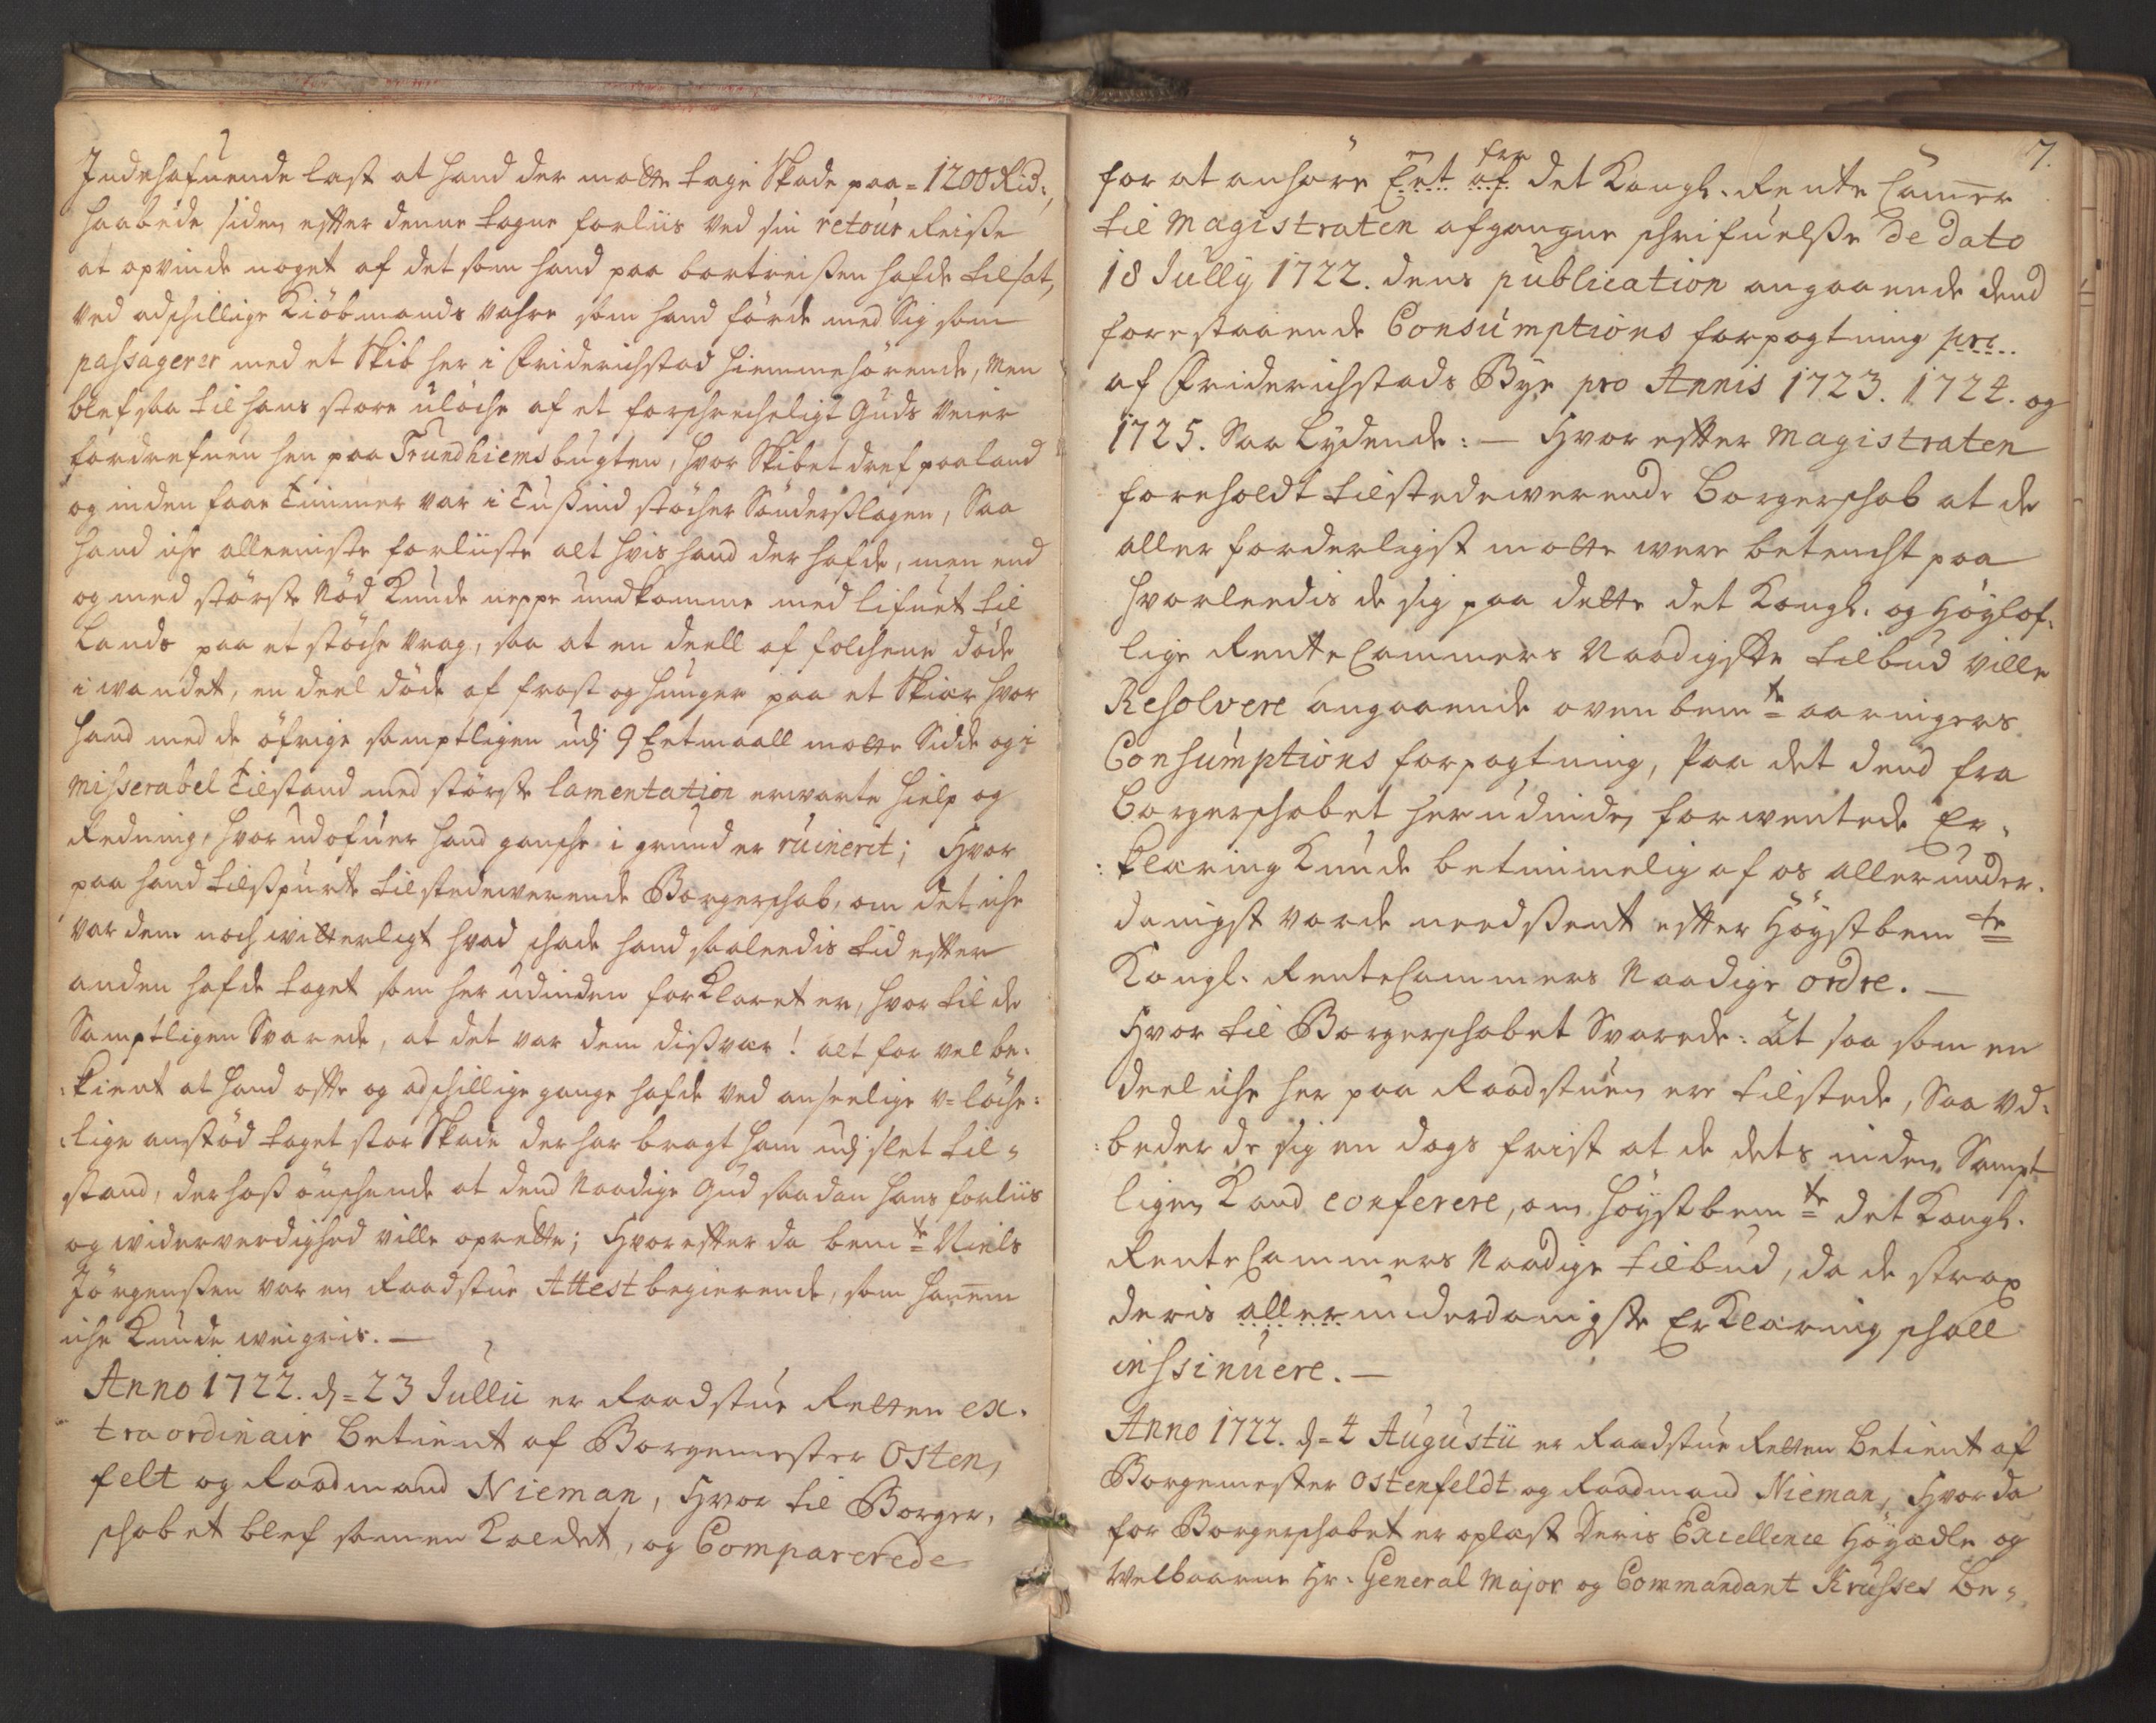 Indehafuende last at hand der motte tage Skade paa = 1200 Rid:,
haabede siden effter denne tagne forliis ved sin retour Reise
at opvinde noget af det som hand paa bortreisen hafde tilsat,
ved adschillige Kiöbmands vahre som hand förde med Sig som
passagerer med et Skib her i Friderichstad hiemmehörende, Men
blef saa til hans store ulöche af et forschrecheligt Guds veier
fordrefuen hen paa Trundhiems bugten, hvor Skibet dref paa land
og inden faae Timmer var i Tusind stöcher Sönderslagen, Saa
hand iche alleeniste forliiste alt hvis hand der hafde, men end
og med störste Nöd Kunde neppe undkomme med lifuet til
Lands paa et stöche vrag, saa at en deell af folchene döde
i wandet, en deel döde af frost og hunger paa et Skiær hvor
hand med de öfrige samptligen udj 9 Eetmaall motte Sidde og i
Misserabel Tilstand med störste lamentation erwarte hielp og
Redning, hvor udofuer hand gansche i grund er ruinerit; Hvor
paa hand tilspurte tilstedewerende Borgerschab, om det iche
var dem noch witterligt hvad schade hand saaleedis tid effter
anden hafde taget som her udinden forklaret er, hvor til de
Samptligen Svarede, at det var dem disvær! alt for vel be-
:kient at hand offte og adschillige gange hafde ved anseelige u-löche-
:lige anstöd taget stor Skade der har bragt ham udj slet til-
stand, derhos önschende at dend Naadige Gud saadan hans forliis
og widerverdighed ville oprette; Hvoreffter da bemte Niels
Jörgensen var en Raadstue Attest begierende, som hannem
iche Kunde weigris. —
Anno 1722. d = 23 Jullii er Raadstue Retten ex-
traordinair betient af Borgemester Osten,
felt og Raadmand Nieman, Hvor til Borger,
schabet blef sammen Kaldet, og Comparerede
7.
for at anhöre Eet af fra det Kongl. Rente Cammer
til Magistraten afgangne schrifuelse de dato
18 Jully 1722. dens publication angaaende dend
forestaaende Consumptions forpagtning pro
af Friderichstads Bye pro Annis 1723. 1724. og
1725. Saa Lydende: — Hvor effter Magistraten
foreholdt tilstedewerende Borgerschab at de
aller forderligst motte were betencht paa
hvorleedis de sig paa dette det Kongl. og Höylof-
lige Rente Cammers Naadigste tilbud ville
Resolvere angaaende oven bemte aaringers
Consumptions forpagtning, Paa det dend fra
Borgerschabet herudinden forwentede Er-
:klæring Kunde betimmelig af os allerunder-
danigst vorde needsent effter Höystbemte
Kongl. Rente Cammers Naadige ordre. —
Hvor til Borgerschabet Svarede: At saa som en
deel iche her paa Raadstuen ere tilstede, Saa vd-
:beder de sig en dags frist at de dets inden Sampt
ligen Kand conferere, om höystbemte det Kongl.
Rente Cammers Naadige tilbud, da de strax
deris allerunderdanigste Erklæring schall
inssinuere. —
Anno 1722. d = 4 Augustii er Raadstue Retten betient af
Borgemester Ostenfeldt og Raadmand Nieman, Hvor da
for Borgerschabet er oplæst Deris Excellence Höyædle og
Welbaarne Hr. General Major og Commandant Krusses Be-